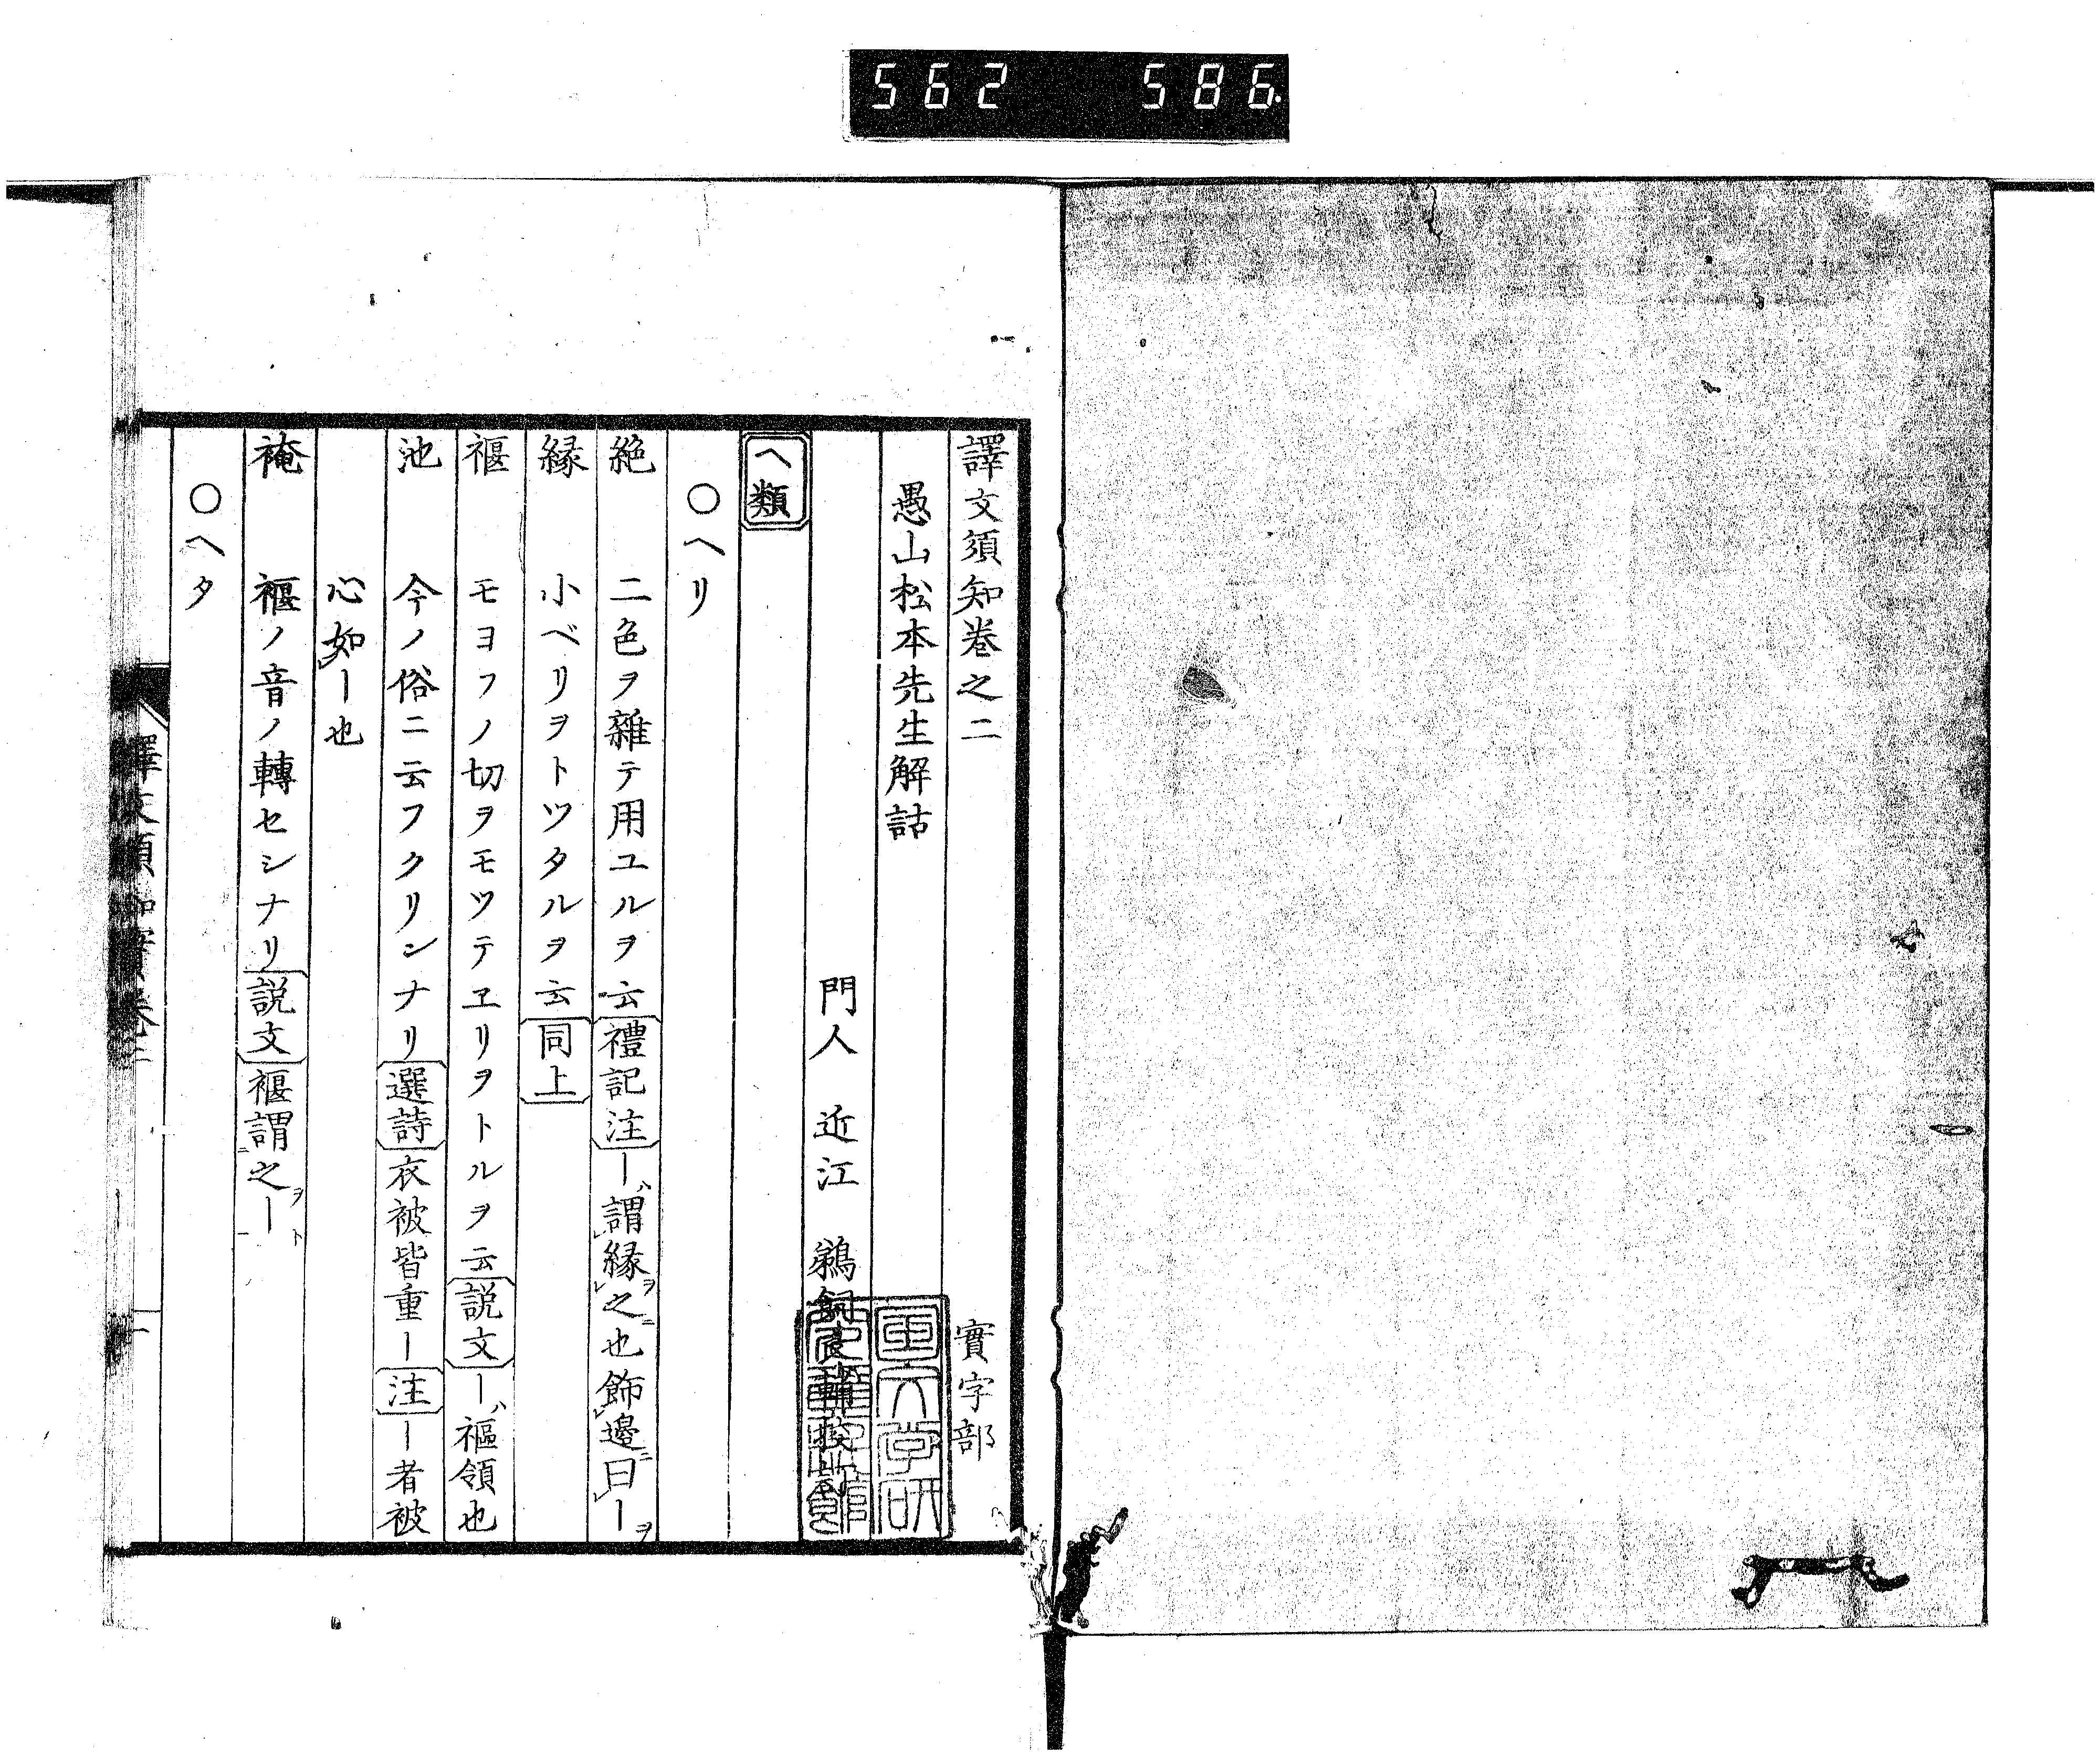 562 586.
譯文須知巻之二 實字部
愚山松本先生解詁
門人 近江 鵜飼
ヘ類
○ヘリ
絶 二色ヲ雜テ用ユルヲ云 禮記注 ーハ謂縁ヲ之ニ也飾邉ニ曰ーヲ
縁 小ベリヲトツタルヲ云 同上
褗 モヨフノ切ヲモツテヱリヲトルヲ云 説文 ーハ褔領也
池 今ノ俗ニ云フクリンナリ 選詩 衣被皆重ー 注 ー者被
心如ー也
裺 褗ノ音ノ轉セシナリ 説文 褗謂之ヲート
○ヘタ
譯文須知實巻二
一